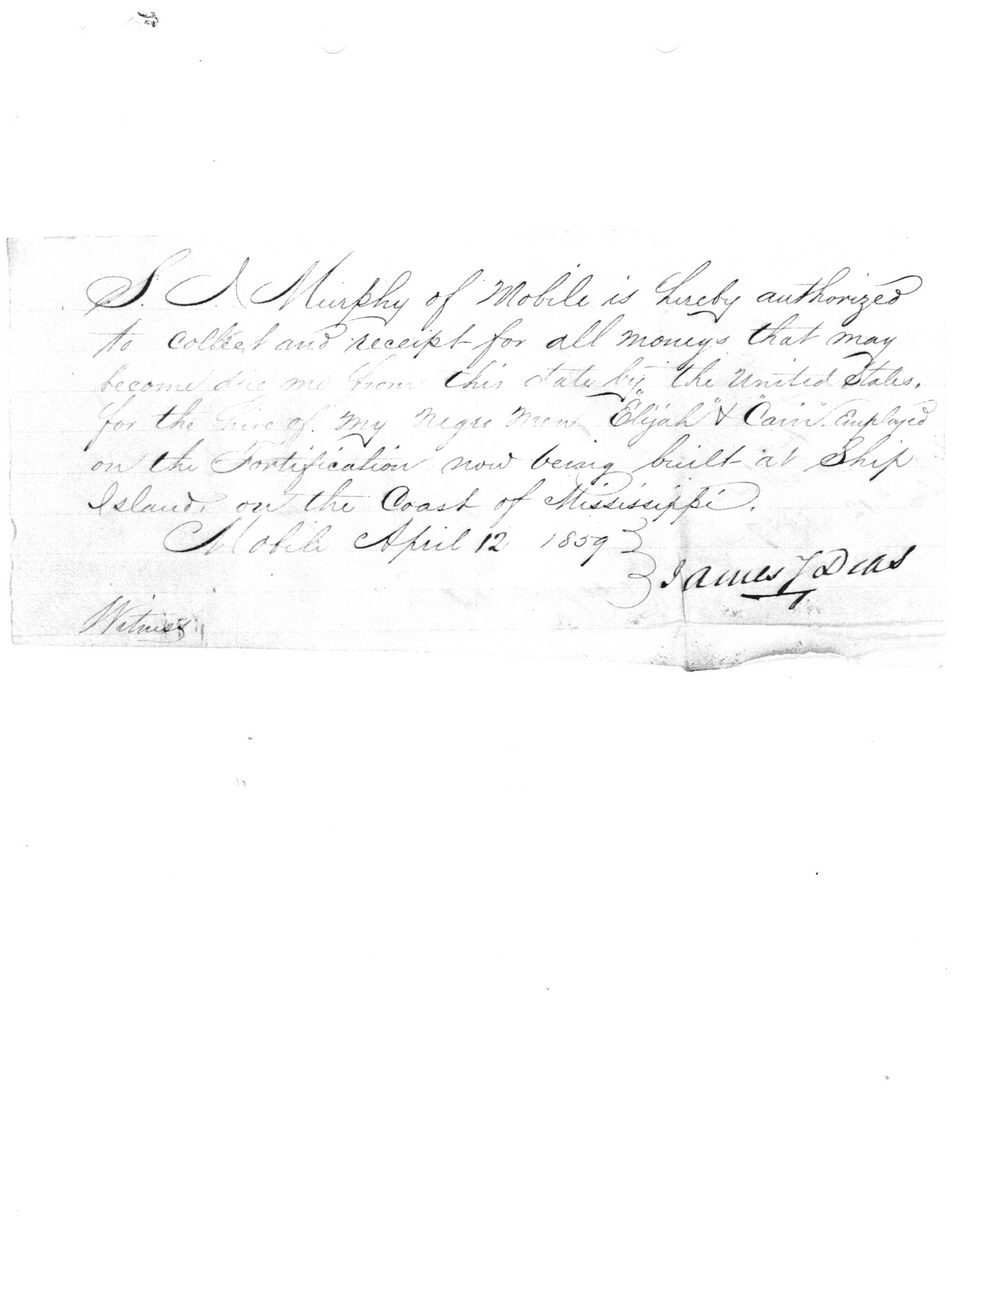 S. J. Murphy of Mobile is hereby authorized
to collect and receipt for all moneys that may
become due me from this date by the United States.
for the hire of my Negro Men "Elijah" & "Cain". Employed
on the Fortification now being built at Ship
Island, on the Coast of Mississippi.
Mobile April 12 1859
James J Deas
Witness